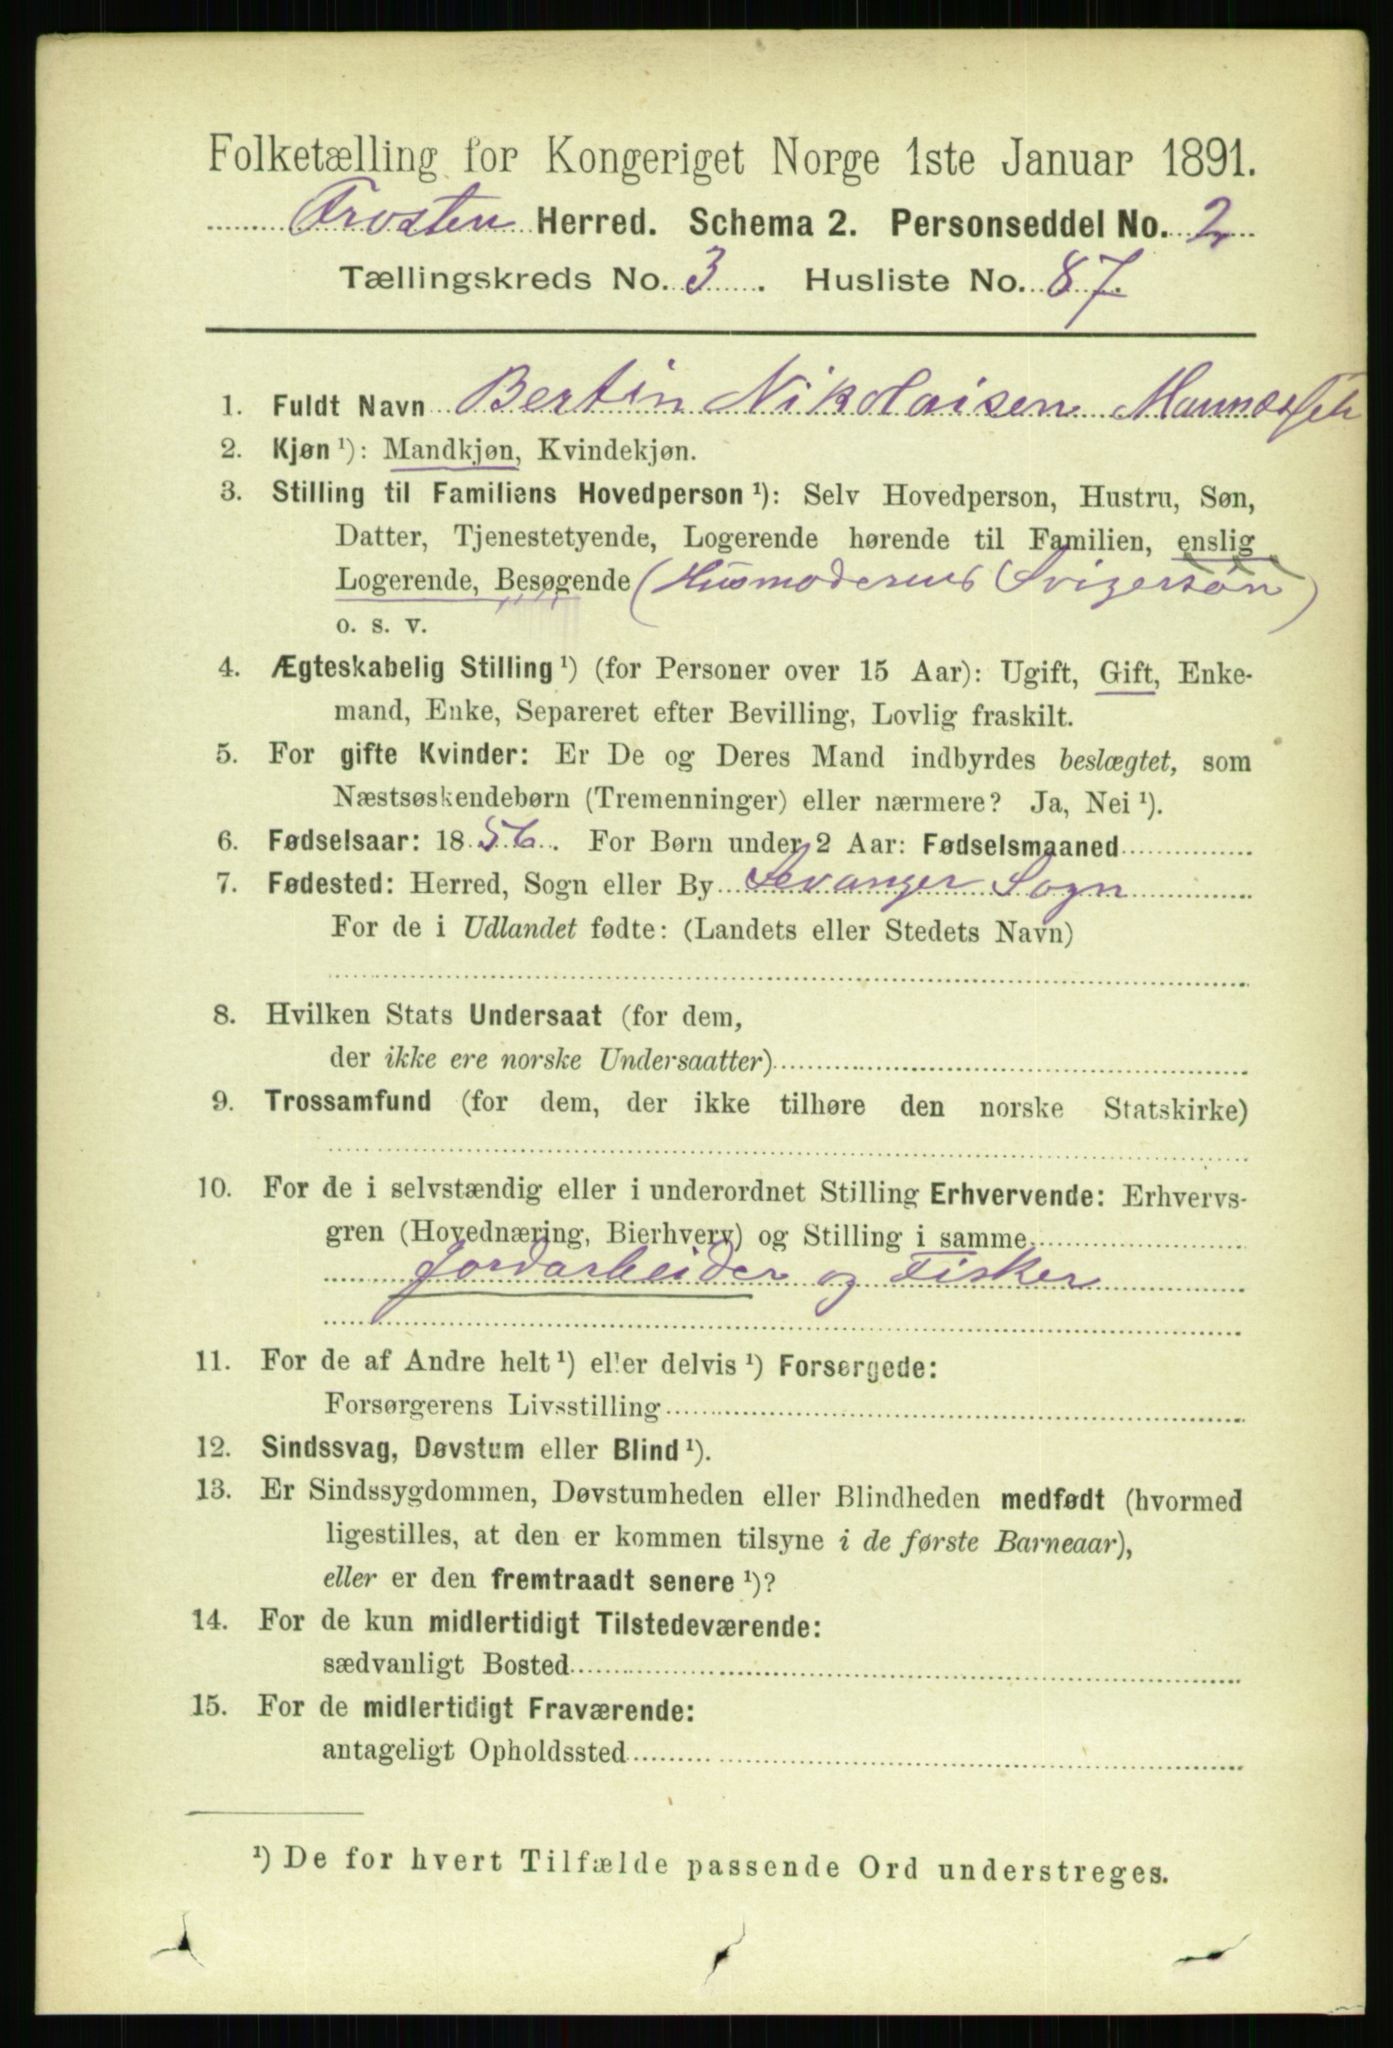 Folketælling for Kongeriget Norge 1ste Januar 1891.
Frosten Herred. Schema 2. Personseddel No. 2
Tællingskreds No. 3. Husliste No. 87.
1. Fuldt Navn Bertin Nikolaisen
2. Kjøn ¹): Mandkjøn, Kvindekjøn.
3. Stilling til Familiens Hovedperson ¹): Selv Hovedperson, Hustru, Søn,
Datter, Tjenestetyende, Logerende hørende til Familien, enslig
Logerende, Besøgende (Husmoderens Svigersøn)
o. s. v.
4. Ægteskabelig Stilling ¹) (for Personer over 15 Aar): Ugift, Gift, Enke-
mand, Enke, Separeret efter Bevilling, Lovlig fraskilt.
5. For gifte Kvinder: Er De og Deres Mand indbyrdes beslægtet, som
Næstsøskendebørn (Tremenninger) eller nærmere? Ja, Nei ¹).
6. Fødselsaar: 1856. For Børn under 2 Aar: Fødselsmaaned
7. Fødested: Herred, Sogn eller By Levanger Sogn
For de i Udlandet fødte: (Landets eller Stedets Navn)
8. Hvilken Stats Undersaat (for dem,
der ikke ere norske Undersaatter)
9. Trossamfund (for dem, der ikke tilhøre den norske Statskirke)
10. For de i selvstændig eller i underordnet Stilling Erhvervende: Erhvervs-
gren (Hovednæring, Bierhverv) og Stilling i samme
Jordarbeider og Fisker
11. For de af Andre helt ¹) eller delvis ¹) Forsørgede:
Forsørgerens Livsstilling
12. Sindssvag, Døvstum eller Blind ¹).
13. Er Sindssygdommen, Døvstumheden eller Blindheden medfødt (hvormed
ligestilles, at den er kommen tilsyne i de første Barneaar),
eller er den fremtraadt senere ¹)?
14. For de kun midlertidigt Tilstedeværende:
sædvanligt Bosted
15. For de midlertidigt Fraværende:
antageligt Opholdssted
¹) De for hvert Tilfælde passende Ord understreges.